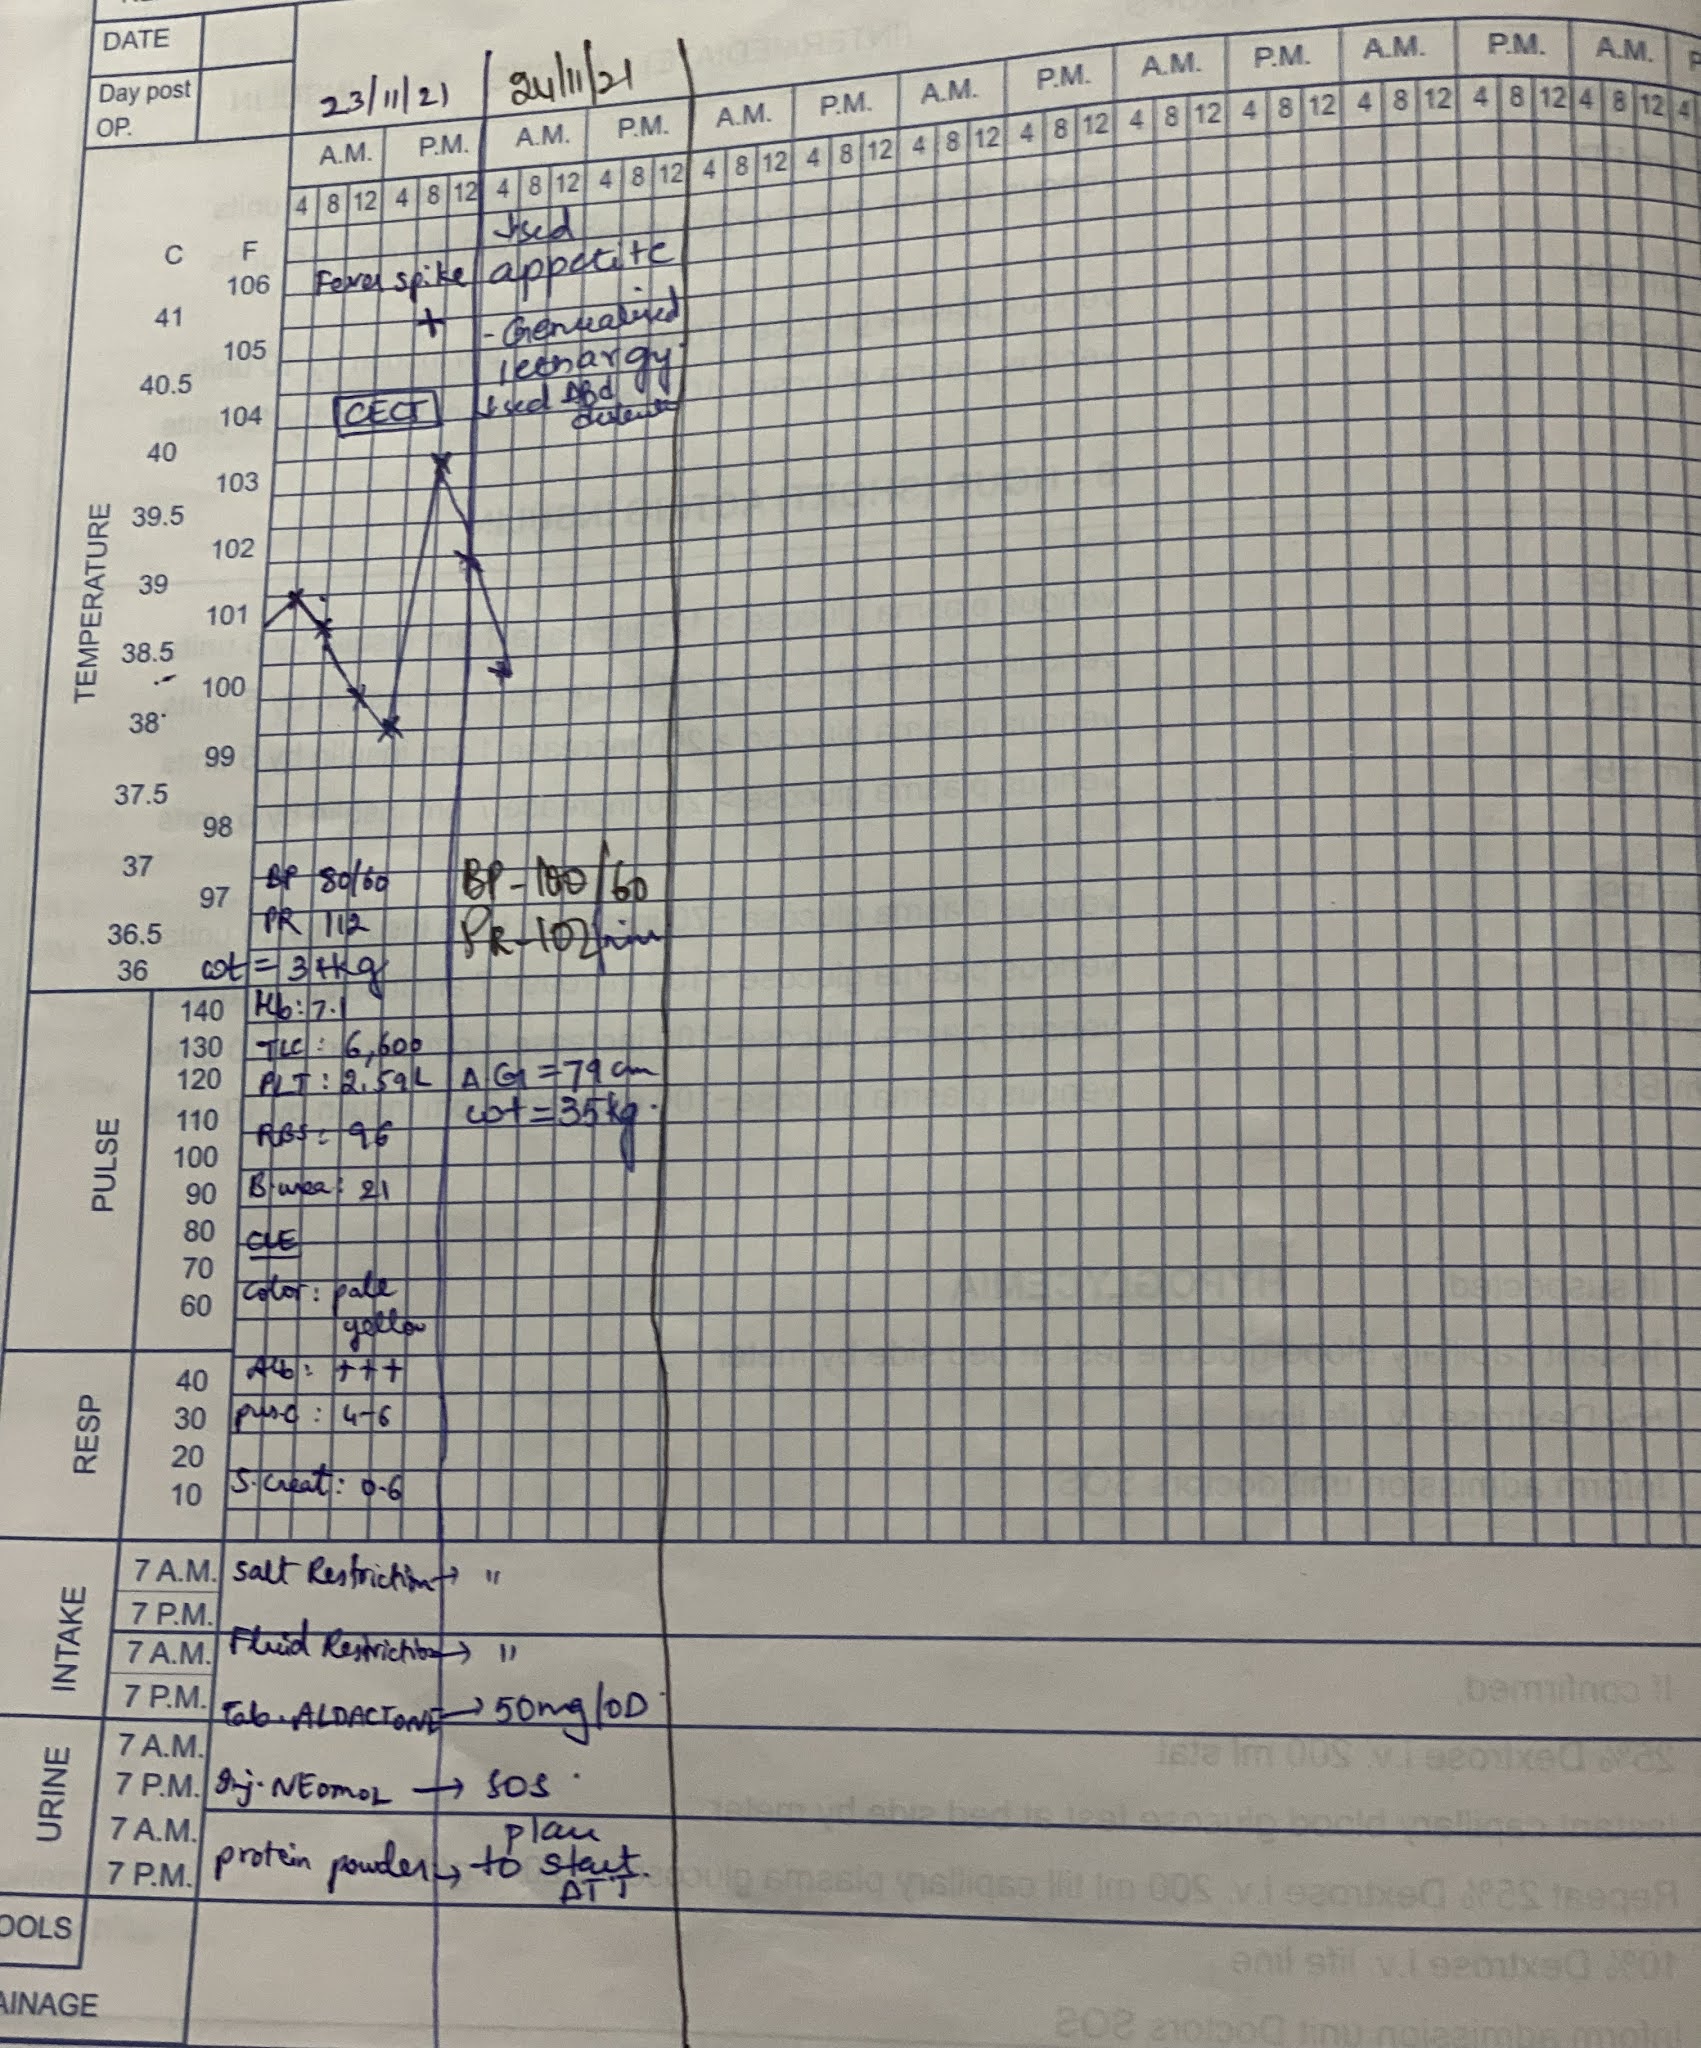 DATE
Day post
OP.
23/11/21 24/11/21
A.M. P.M. A.M. P.M. A.M. P.M. A.M. P.M. A.M. P.M. A.M. P.M. A.M. P
4 8 12 4 8 12 4 8 12 4 8 12 4 8 12 4 8 12 4 8 12 4 8 12 4 8 12 4 8 12 4 8 12 4 8 12 4 8 12 4
C F
TEMPERATURE
106
41
105
40.5
104
40
103
39.5
102
39
101
38.5
100
38
99
37.5
98
37
97
36.5
36
Fever spike
+
CECT
↓sed
appetite
- Generalised
↓sed Abd
BP 80/60
PR 112
BP - 100/60
PR - 102/min
PULSE
140
130
120
110
100
90
80
70
60
Hb: 7.1
TLC: 6,600
PLT: 2.59L
RBS: 96
B.urea: 21
CUE
Color: pale
yellow
AG = 79 cm
wt = 35kg.
RESP
40
30
20
10
Alb: +++
pus c: 4-6
S.Creat: 0.6
INTAKE
7 A.M.
7 P.M.
7 A.M.
7 P.M.
Salt Restriction → "
Fluid Restriction → "
Tab. ALDACTONE → 50mg/OD
URINE
7 A.M.
7 P.M.
7 A.M.
7 P.M.
Inj. NEOMOL → SOS
protein powder →
plan
to start
ATT
OOLS
AINAGE